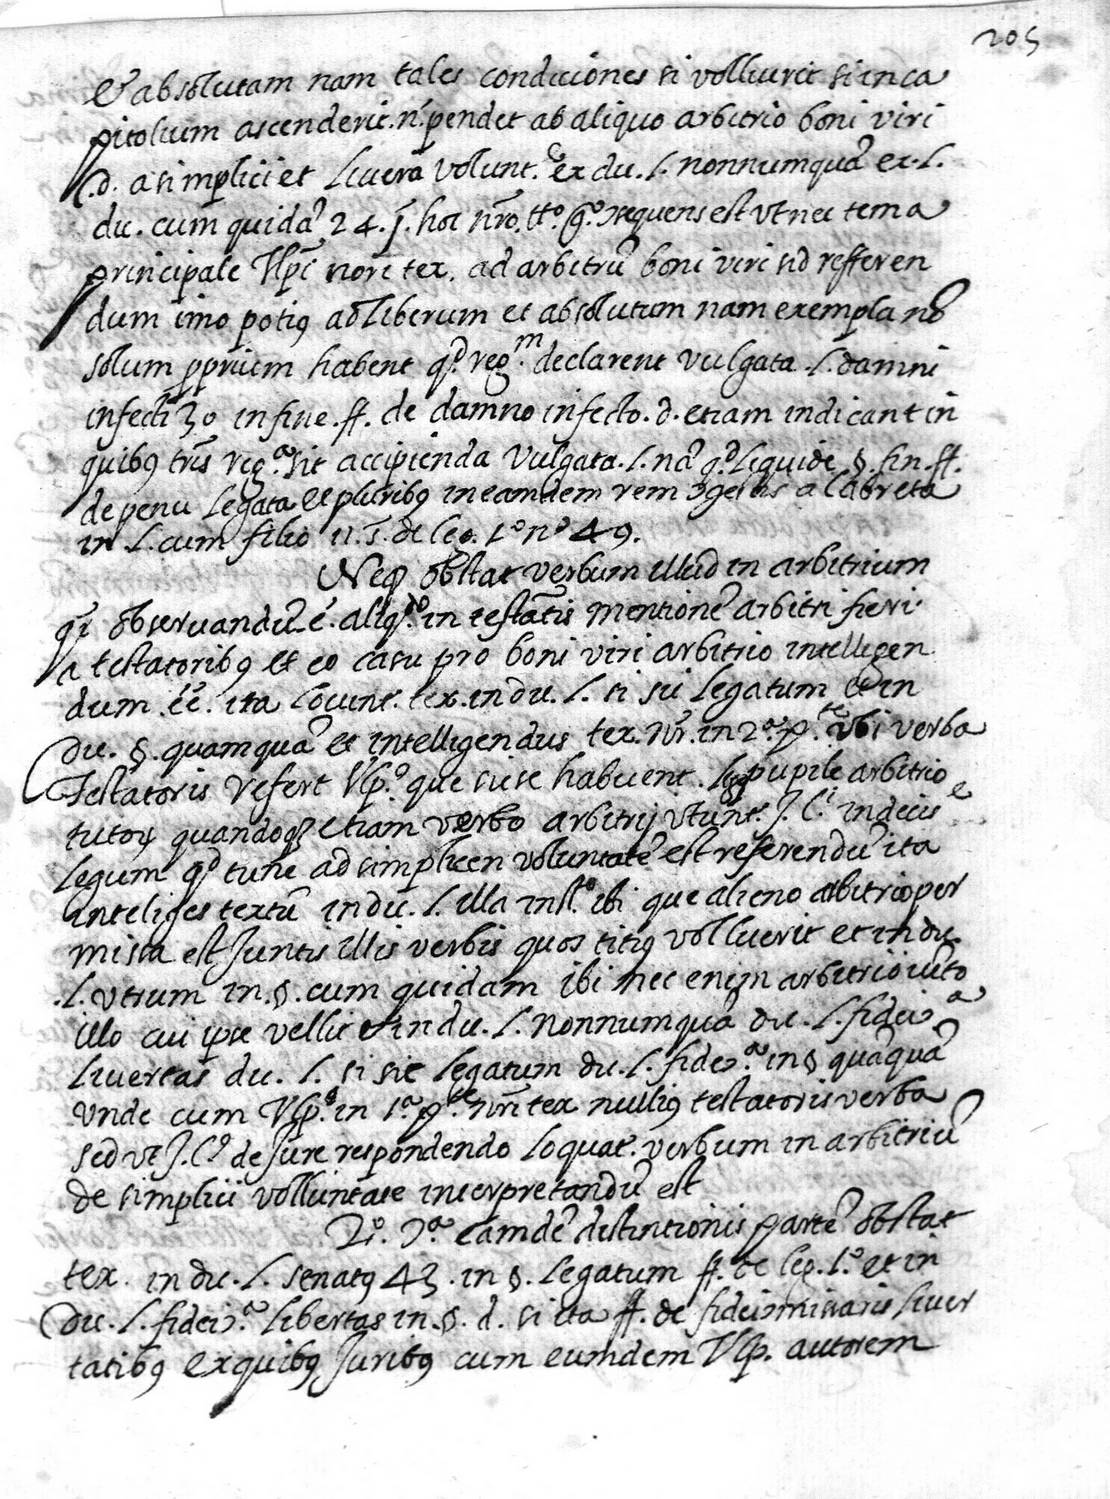 205
& absolutam nam tales condiciones si volluerit si in ca
pitolium ascenderit. n. pendet ab aliquo arbitrio boni viri
.d. a simplici et livera volunt.e ex du. l. nonnumquã ex. l.
du. cum quidã 24. j. hoc nro. tto. sequens est vt nec tema
principale Vlpi nori tex. ad arbitrũ boni viri sid refferen
dum imo potius ad liberum et absolutum nam exempla nõ
solum pprium habent qd. reg.m declarent vulgata .l. damni
infecti 30 in fine. ff. de damno infecto. d. etiam indicant in
quibus tris reg.a sit accipienda vulgata .l. nã qd. liquide §. fin. ff.
de penu legata et pluribus in eamdem rem a Cabreta
in l. cum filio 11. s. de leg. 1o no 49.
Neq obstat verbum illud in arbitrium
qi observandũ é. aliq.do in testatis mentionẽ arbitri fieri
a testatoribus et eo casu pro boni viri arbitrio intelligen
dum .ẽe. ita tex. in du. l. si sic legatum et in
du. §. quamquã et intelligendus tex. nr. in 2.a p.te ubi verba
testatoris refert Vlp.o que sic se habuent. pupile arbitrio
tutor quandoqz etiam verbo arbitrij vtunt. J. C.i in decis
legum qd tunc ad simplicen voluntatẽ est referendũ ita
inteliges textũ in du. l. illa inst.o ibi que alieno arbitrio per
missa est Juntis illis verbis quos titius volluerit et in du.
.l. vtrum in. §. cum quidam ibi nec enim arbitrio iuto
illo cui ipse vellit et in du. l. nonnumquã du. l. fidei a
livertas du. l. si sic legatum du. l. fide a in § quãquã
Vnde cum Vlp.s in 1.a p.te nri tex nullius testatoris verba
sed vt J. C.s de Jure respondendo loquat. verbum in arbitriũ
de simplici volluntate interpretandũ est
2o. 2.a eamdẽ distintionis partẽ obstat
tex. in du. l. senatus 43. in §. legatum ff. de leg. 1.o et in
du. l. fidei a libertas in. §. d. si ita ff. de fideiminaris liver
tatibus ex quibus Juribus cum eumdem Vlp. autorem